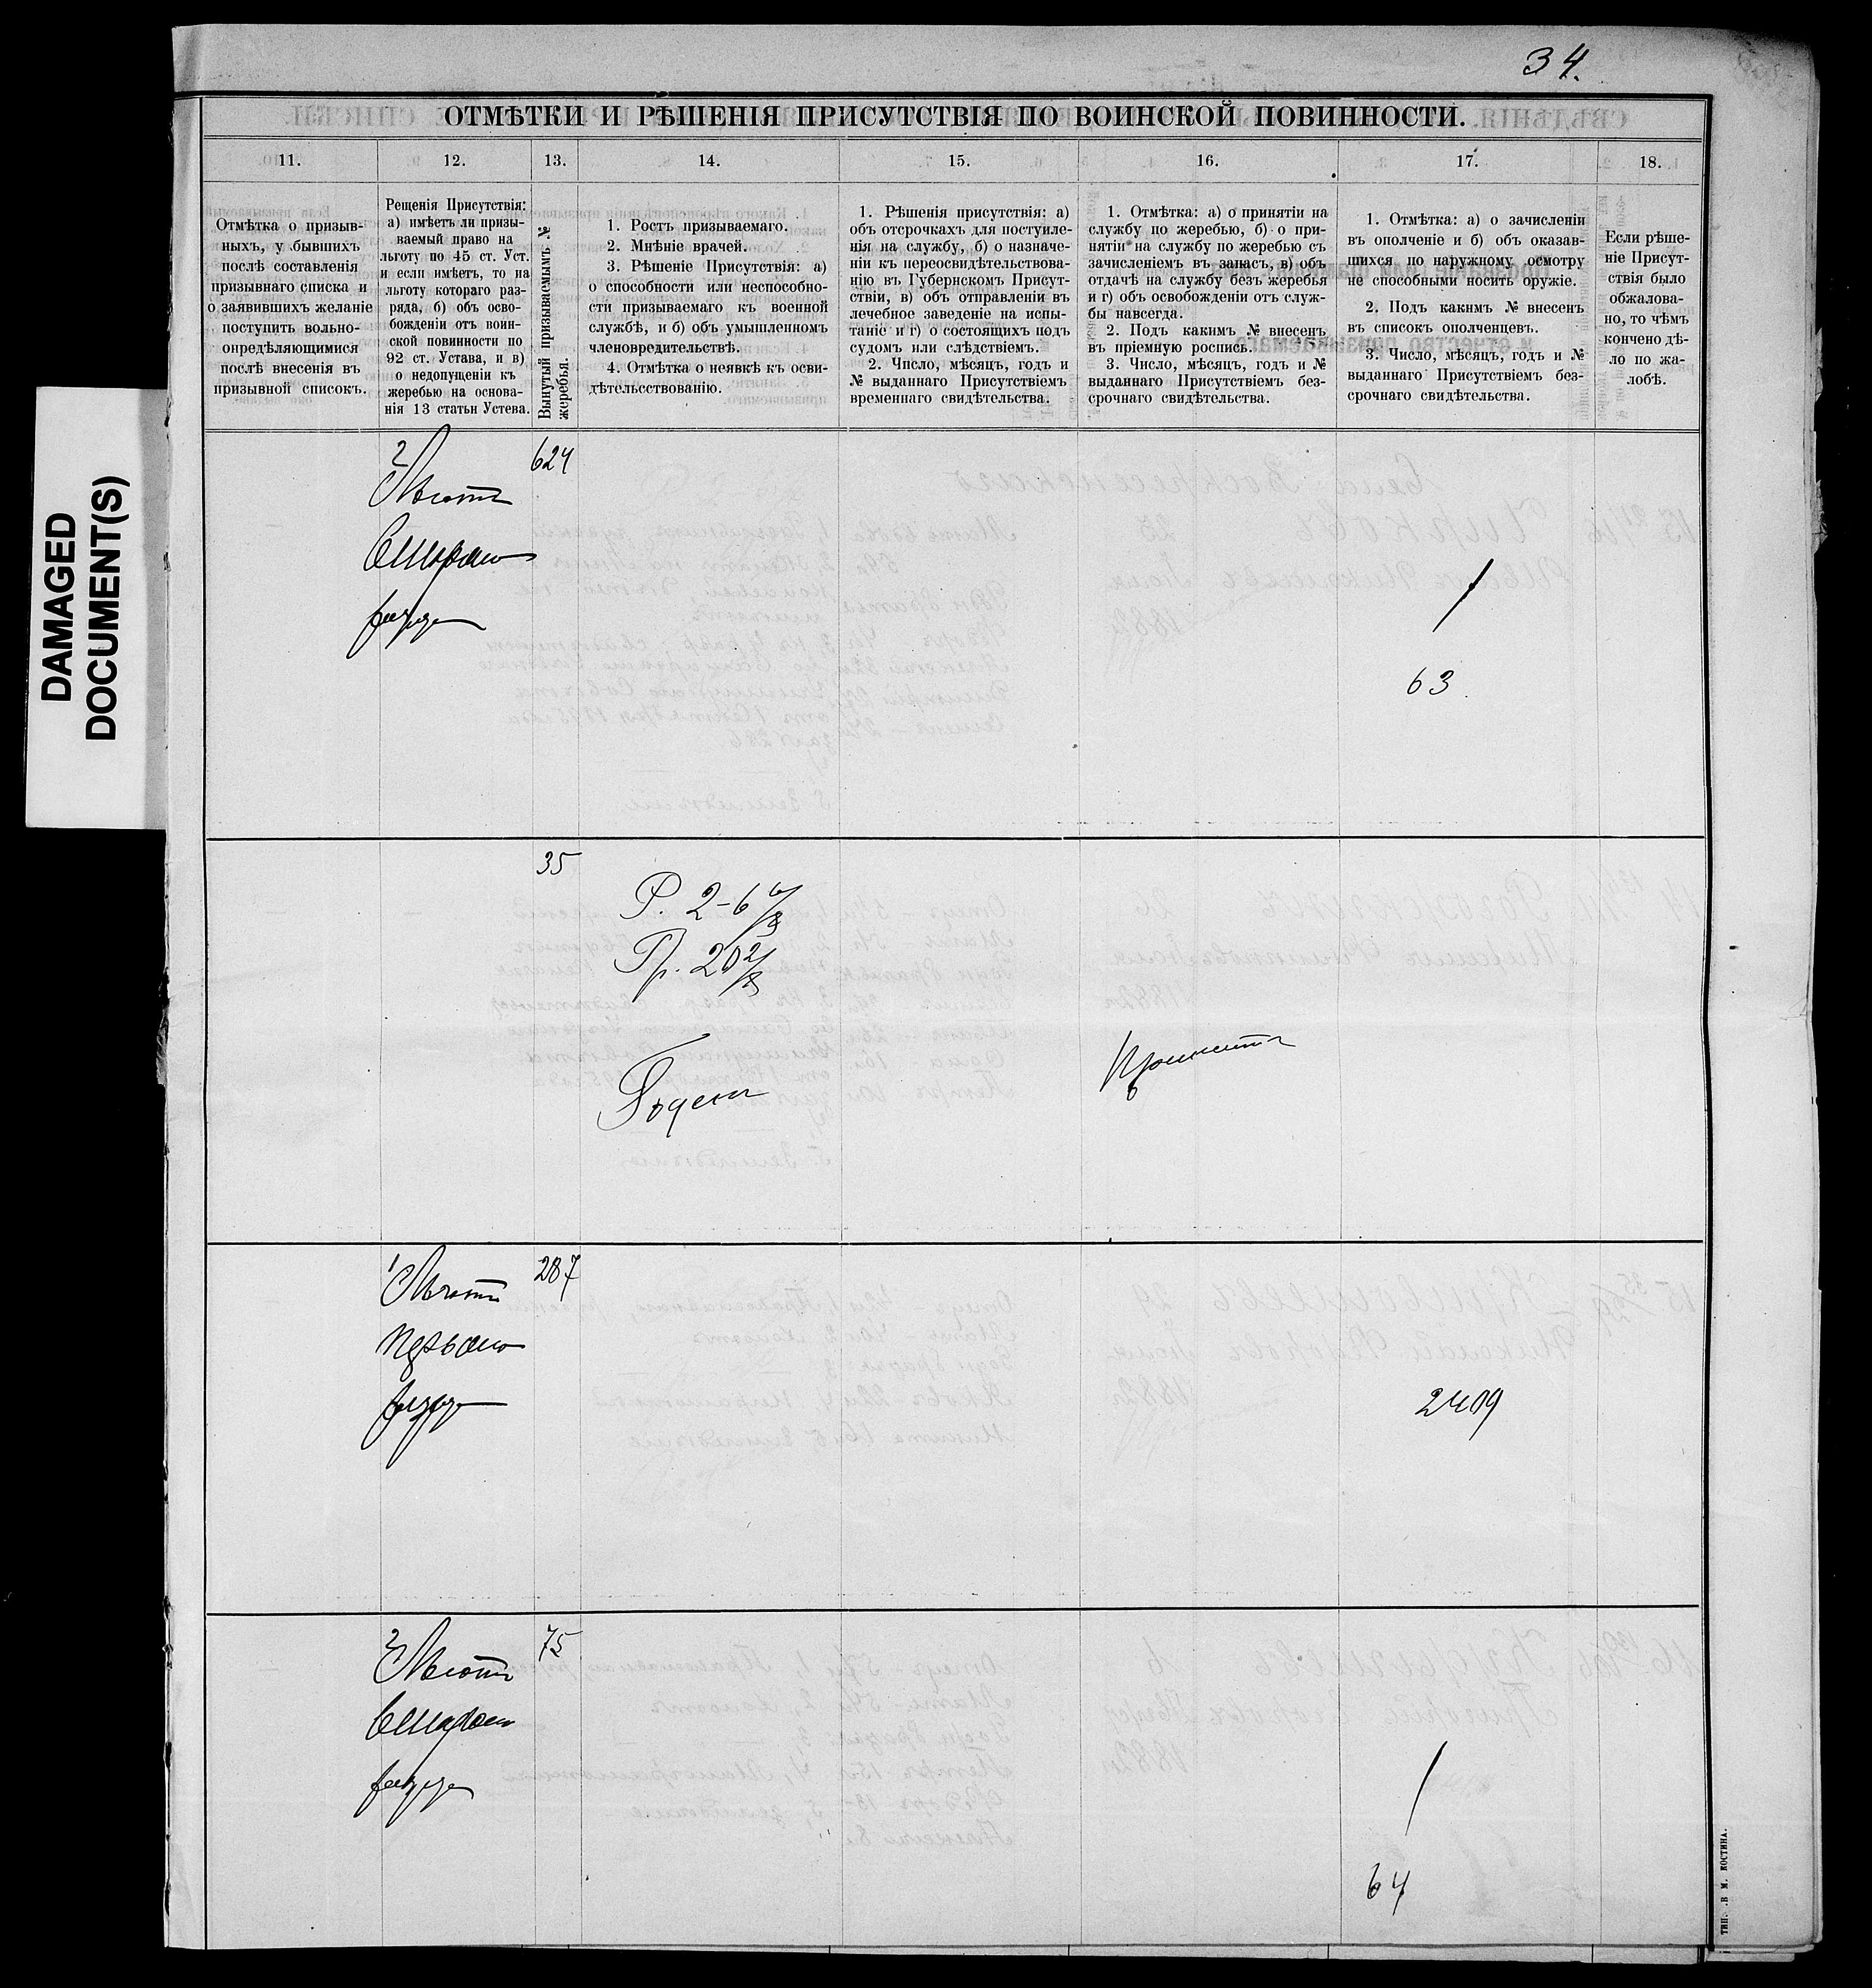 34.
DAMAGED
DOCUMENT(S)
ОТМѢТКИ И РѢШЕНІЯ ПРИСУТСТВІЯ ПО ВОИНСКОЙ ПОВИННОСТИ.
11.
12.
13.
14.
15.
16.
17.
18.
Отмѣтка о призыв-
ныхъ, у бывшихъ
послѣ составленія
призывнаго списка и
о заявившихъ желаніе
поступить вольно-
опредѣляющимися
послѣ внесенія въ
призывной списокъ.
Рещенія Присутствія:
а) имѣетъ ли призы-
ваемый право на
льготу по 45 ст. Уст.
и если имѣетъ, то на
льготу котораго раз-
ряда, б) объ осво-
божденіи отъ воин-
ской повинности по
92 ст. Устава, и в)
о недопущеніи къ
жеребью на основа-
нія 13 статьи Устева.
Вынутый призываемымъ №
жеребья.
1. Ростъ призываемаго.
2. Мнѣніе врачей.
3. Рѣшеніе Присутствія: а)
о способности или неспособно-
сти призываемаго къ военной
службѣ, и б) объ умышленномъ
членовредительствѣ.
4. Отмѣтка о неявкѣ къ осви-
дѣтельсствованію.
1. Рѣшенія присутствія: а)
объ отсрочкахъ для постуиле-
нія на службу, б) о назначе-
ніи къ переосвидѣтельствова-
нію въ Губернскомъ Присут-
ствіи, в) объ отправленіи въ
лечебное заведеніе на испы-
таніе и г) о состоящихъ подъ
судомъ или слѣдствіемъ.
2. Число, мѣсяцъ, годъ и
№ выданнаго Присутствіемъ
временнаго свидѣтельства.
1. Отмѣтка: а) о принятіи на
службу по жеребью, б) о при-
нятіи на службу по жеребью съ
зачисленіемъ въ запасъ, в) объ
отдачѣ на службу безъ жеребья
и г) объ освобожденіи отъ служ-
бы навсегда.
2. Подъ какимъ № внесенъ
въ пріемную роспись.
3. Число, мѣсяцъ, годъ и №
выданнаго Присутствіемъ без-
срочнаго свидѣтельства.
1. Отмѣтка: а) о зачисленіи
въ ополченіе и б) объ оказав-
шихся по наружному осмотру
не способными носить оружіе.
2. Подъ какимъ № внесенъ
въ списокъ ополченцевъ.
3. Число, мѣсяцъ, годъ и №
выданнаго Присутствіемъ без-
срочнаго свидѣтельства.
Если рѣше-
ніе Присут-
ствія было
обжалова-
но, то чѣмъ
кончено дѣ-
ло по жа-
лобѣ.
2
624
63
35
Р. 2-6 6/8
Гр. 20 2/8
Годенъ
Принятъ
1
287
2409
2
75
64
ТИП. .В М. КОСТИНА.